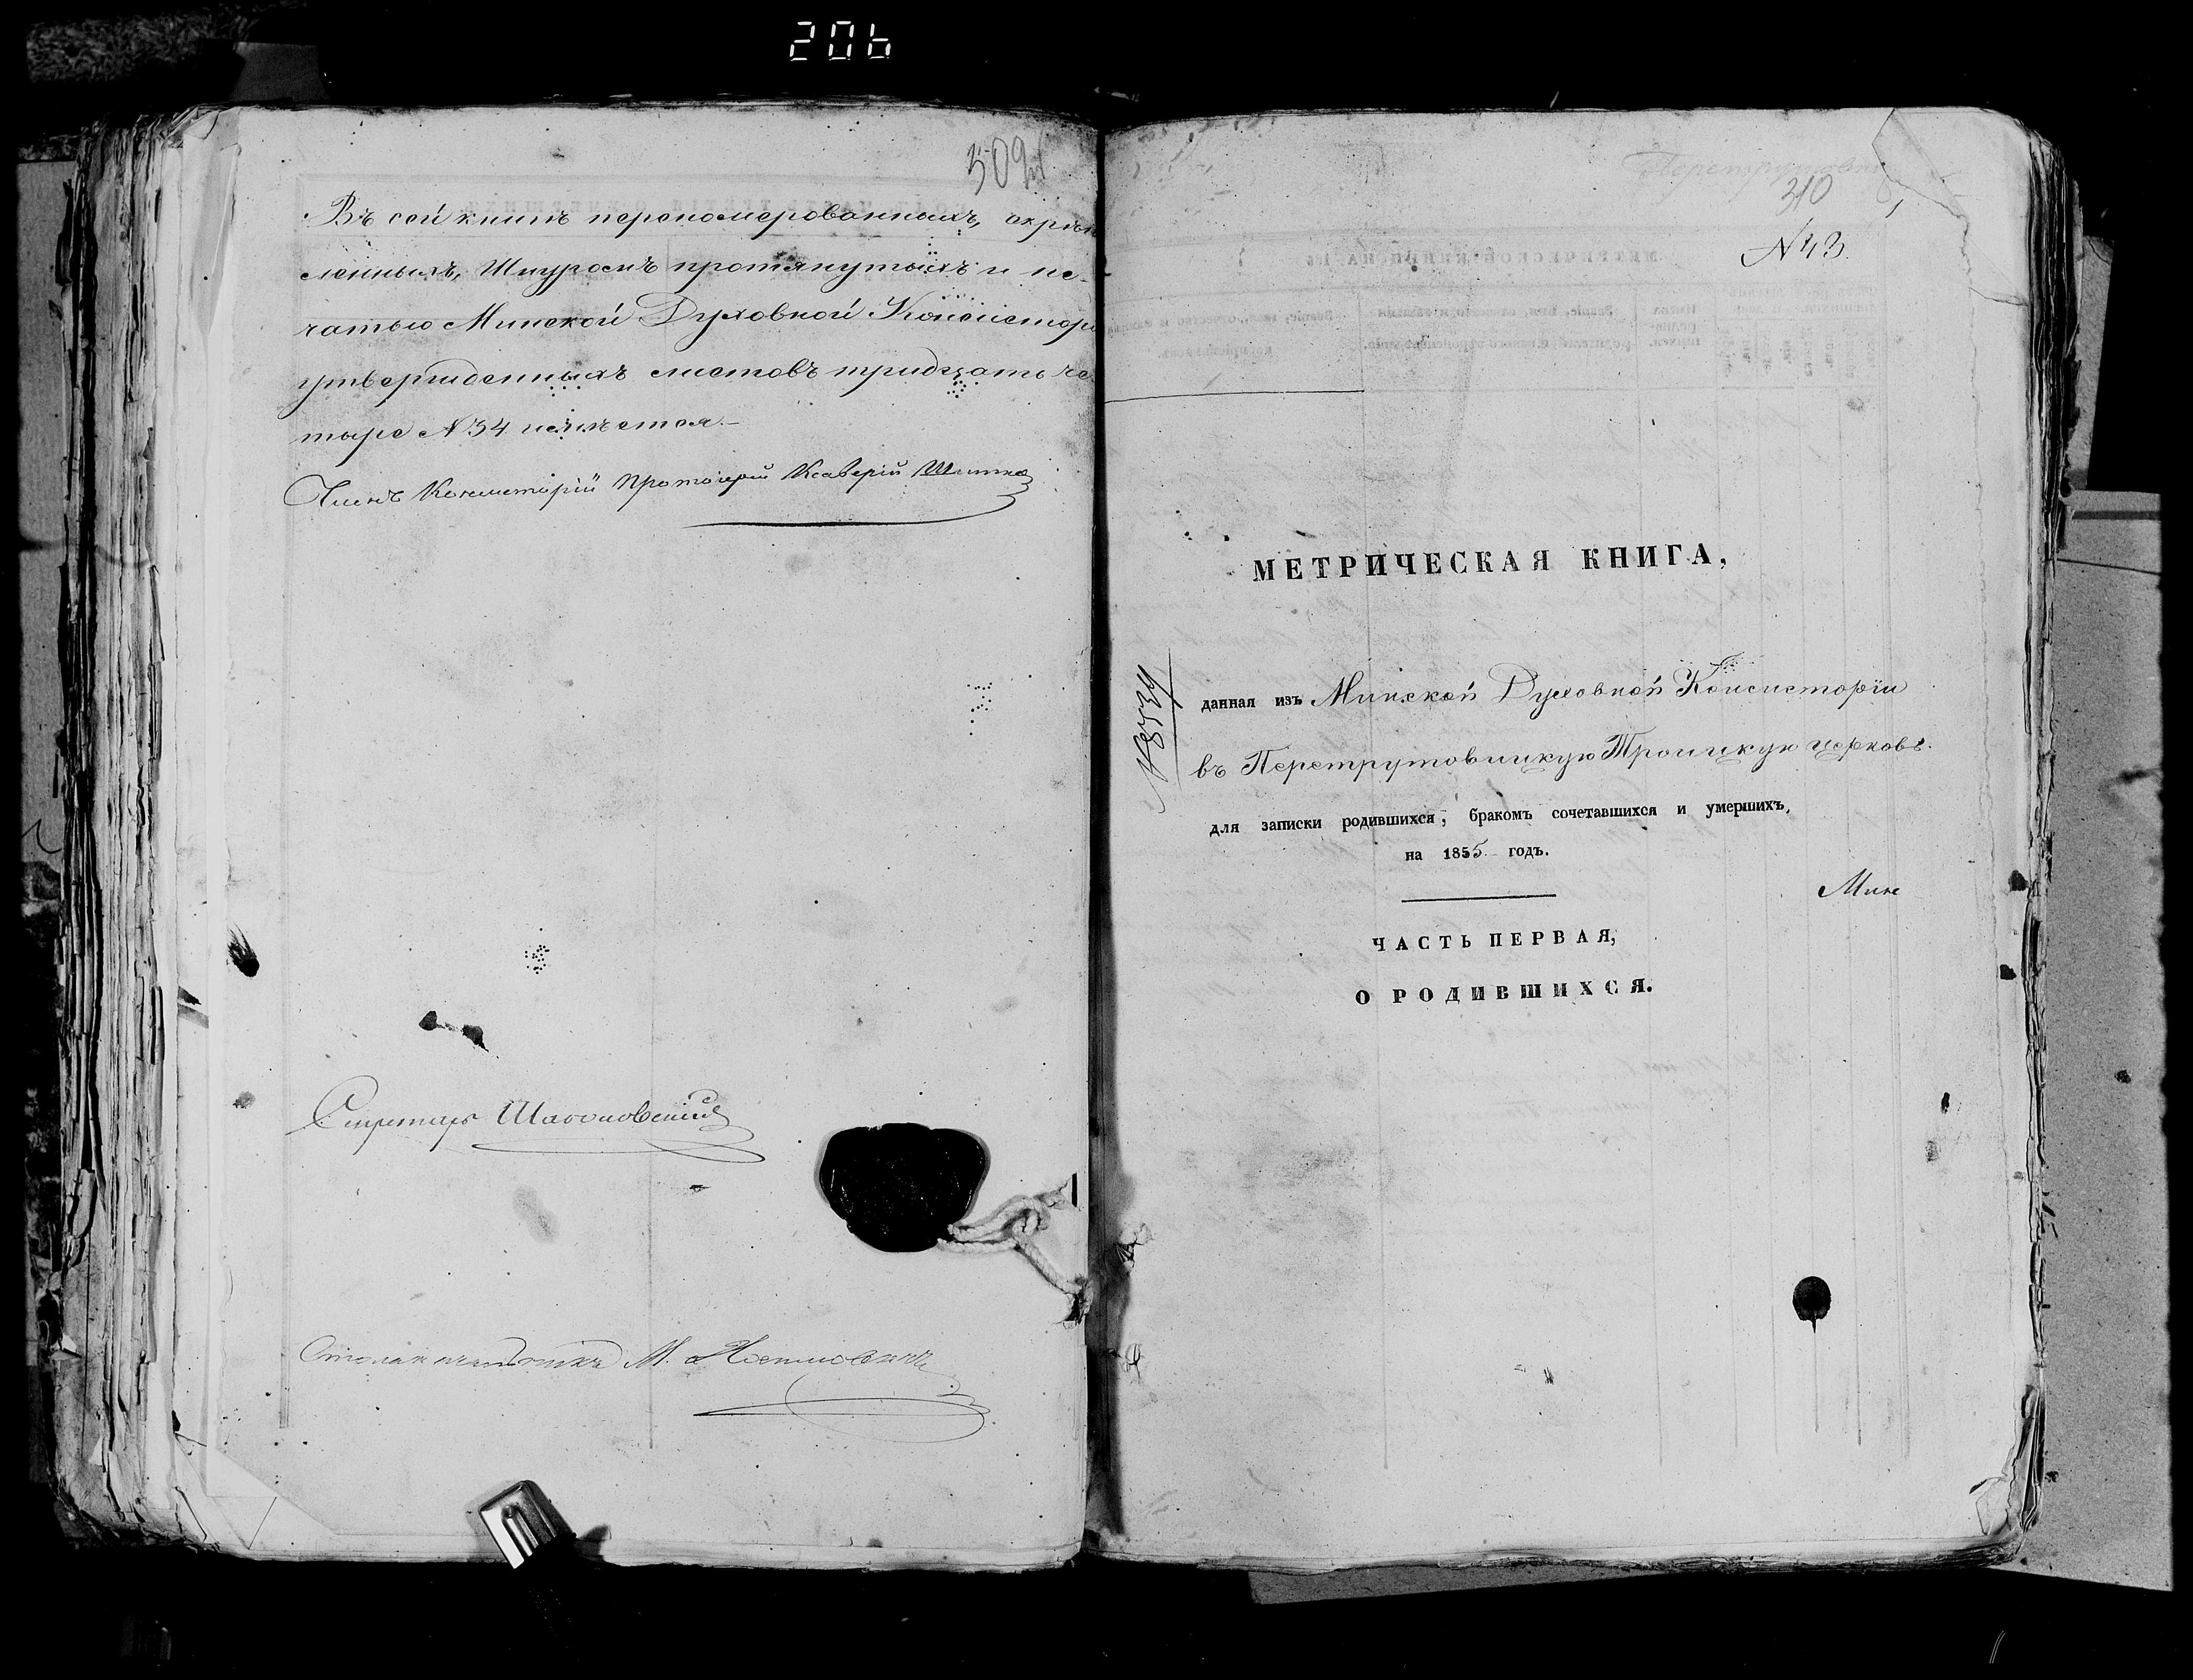 206
509
Въ сей книгѣ перепомерованныхъ, скрѣп
ленныхъ, Шнуромъ протянутыхъ и пе-
чатью Минской Духовной Консистори
утвержденныхъ листовъ тридцать че
тыре №34 имѣется.
Членъ Консисторіи Протоіерей Ксаверій
Секретарь
Столоначальникъ М.
310
№43.
МЕТРИЧЕСКАЯ КНИГА,
№8534
данная изъ Минской Духовной Консисторіи
въ Перетрутовицкую Троицкую церковь.
для записки родившихся, бракомъ сочетавшихся и умершихъ,
на 1855 годъ.
Мин
ЧАСТЬ ПЕРВАЯ,
О РОДИВШИХСЯ.